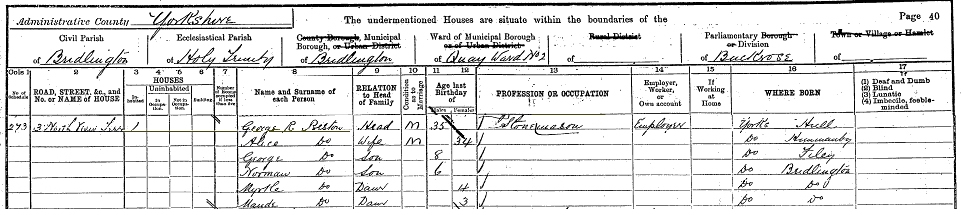 Administrative County Yorkshire The undermentioned Houses are situate within the boundaries of the Page 40
Civil Parish Ecclesiastical Parish County Borough, Municipal Borough, or Urban District Ward of Municipal Borough or of Urban District Rural District Parliamentary Borough or Division Town or Village or Hamlet
of Bridlington of Holy Trinity of Bridlington of Quay Ward No 2 of of Buckrose of
Cols 1 2 3 4 5 6 7 8 9 10 11 12 13 14 15 16 17
No. of Schedule ROAD, STREET, &c., and No. or NAME of HOUSE HOUSES Inhabited Uninhabited In Occupation Not in Occupation Building Number of Rooms occupied if less than five Name and Surname of each Person RELATION to Head of Family Condition as to Marriage Age last Birthday of Males Females PROFESSION OR OCCUPATION Employer, Worker, or Own account If Working at Home WHERE BORN (1) Deaf and Dumb (2) Blind (3) Lunatic (4) Imbecile, feeble-minded
273 3 North View Terr 1 George R Preston Head M 35 Stonemason Employer Yorks Hull
Alice Do Wife M 34 Do Hunmanby
George Do Son 8 Do Filey
Norman Do Son 6 Do Bridlington
Myrtle Do Daur 4 Do Do
Maude Do Daur 3 Do Do